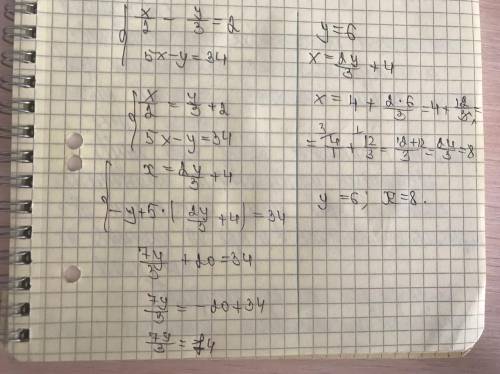 { x/2 - y/3 = 2
5x-y=34
{ x/2 = y/3 + 2
5x-y=34
{ x = 2y/3 + 4
-y+5·(2y/3 + 4) = 34
7y/3 + 20 = 34
7y/3 = -20+34
7y/3 = 14
y=6
x = 2y/3 + 4
x = 4 + 2·6/3 = 4 + 12/3 =
= 4/1 + 12/3 = 12+12/3 = 24/3 = 8
y=6; x=8.